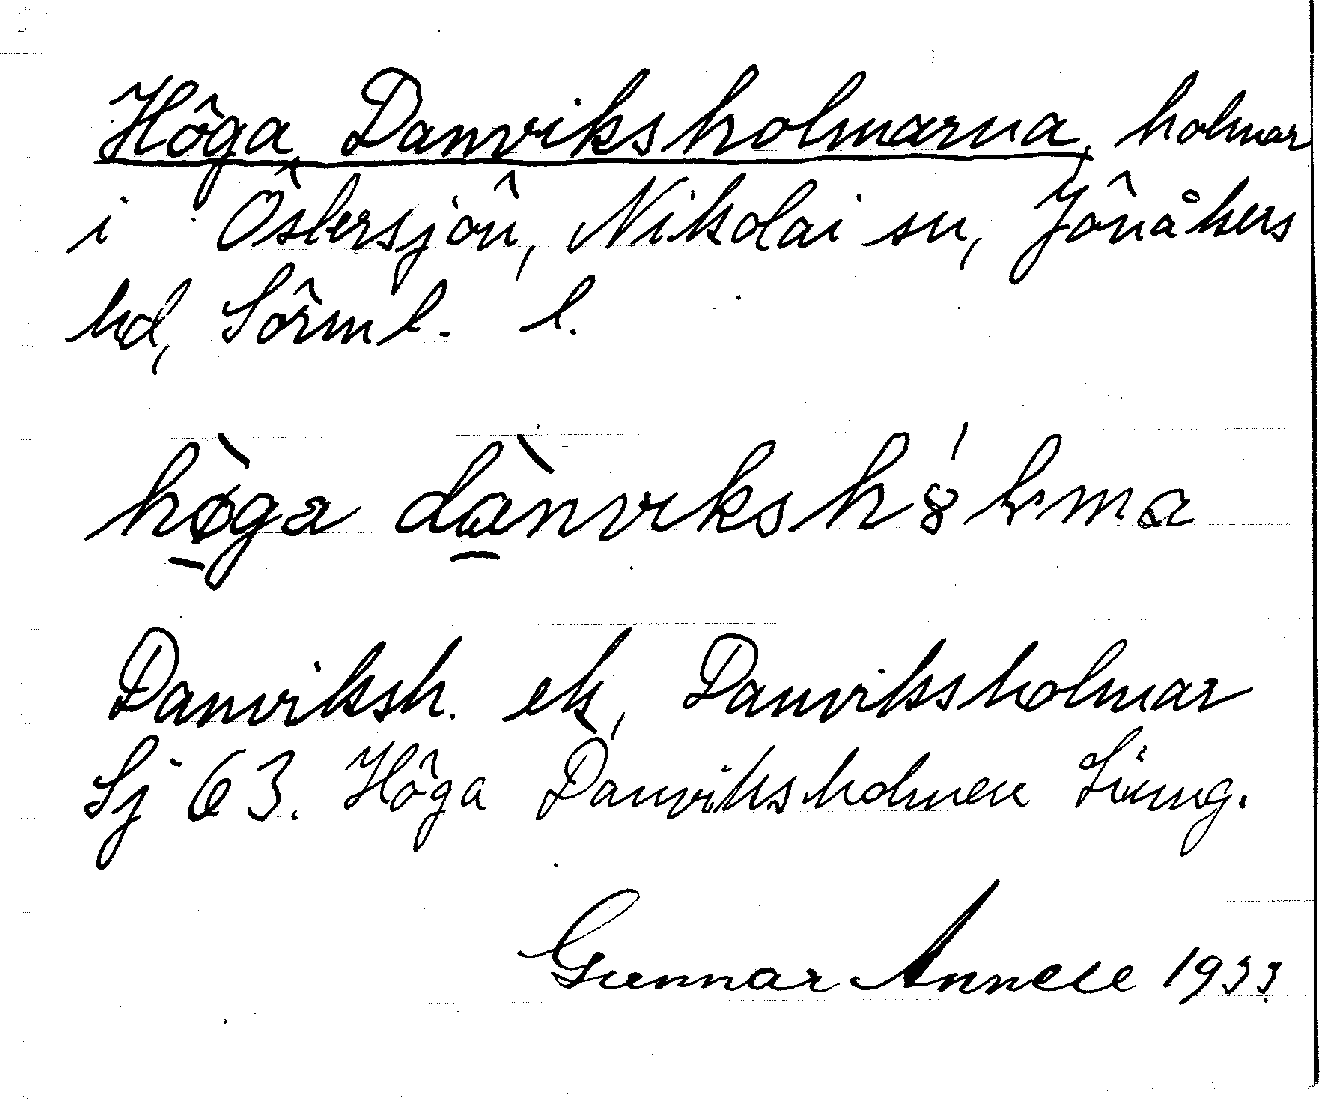 Höga Danviksholmarna, holmar
i Östersjön, Nikolai sn, Jönåkers
hd, Sörml. l.
hø̀ga dànvikshọ́lma
Danviksh. ek, Danviksholmar
Sj 63. Höga Danviksholmen Ljung.
Gunnar Annell 1933